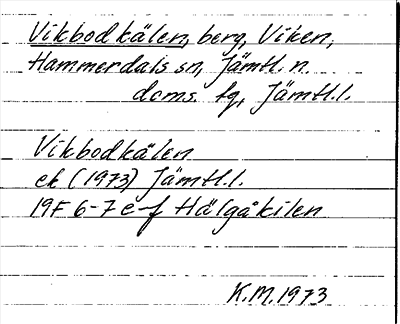 Vikbodkälen, berg, Viken,
Hammerdals sn, Jämtl. n.
dcms. fg, Jämtl.l.
Vikbodkälen
ek (1973) Jämtl.l.
19F 6-7 e-f Hälgåkilen
K.M. 1973